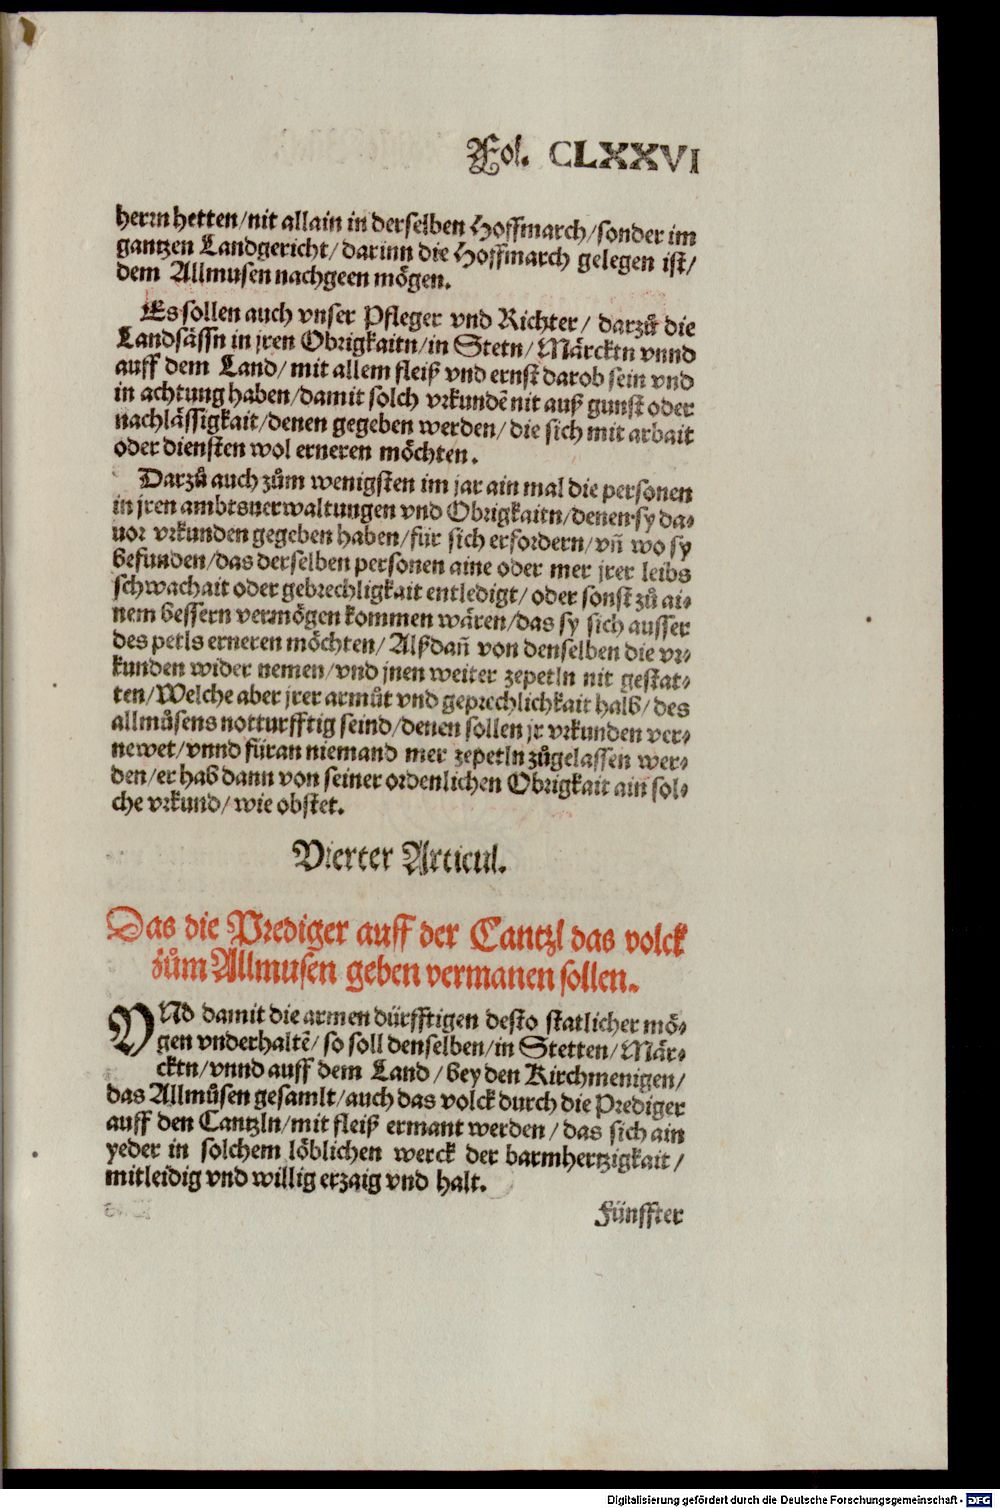 Fol. CLXXVI
herrn hetten/nit allain in derselben Hoffmarch/sonder im
gantzen Landgericht/darinn die Hoffmarch gelegen ist/
dem Allmusen nachgeen mögen.
Es sollen auch vnser Pfleger vnd Richter/ darzů die
Landsässn in jren Obrigkaitn/in Stetn/Märcktn vnnd
auff dem Land/mit allem fleiß vnd ernst darob sein vnd
in achtung haben/damit solch vrkundē nit auß gunst oder
nachlässigkait/denen gegeben werden/die sich mit arbait
oder diensten wol erneren möchten.
Darzů auch zům wenigsten im jar ain mal die personen
in jren ambtsuerwaltungen vnd Obrigkaitn/denen sy da⸗
uor vrkunden gegeben haben/für sich erfordern/vñ wo sy
befunden/das derselben personen aine oder mer jrer leibs
schwachait oder gebrechligkait entledigt/oder sonst zů ai⸗
nem bessern vermögen kommen wären/das sy sich ausser
des petls erneren möchten/Alßdañ von denselben die vr⸗
kunden wider nemen/vnd jnen weiter zepetln nit gestat⸗
ten/Welche aber jrer armůt vnd geprechlichkait halb/des
allmůsens notturfftig seind/denen sollen jr vrkunden ver⸗
newet/vnnd füran niemand mer zepetln zůgelassen wer⸗
den/er hab dann von seiner ordenlichen Obrigkait ain sol⸗
che vrkund/wie obstet.
Vierter Articul.
Das die Prediger auff der Cantzl das volck
zům Allmusen geben vermanen sollen.
VNd damit die armen dürfftigen desto statlicher mö⸗
gen vnderhaltē/so soll denselben/in Stetten/Mär⸗
cktn/vnnd auff dem Land/bey den Kirchmenigen/
das Allmůsen gesamlt/auch das volck durch die Prediger
auff den Cantzln/mit fleiß ermant werden/das sich ain
yeder in solchem löblichen werck der barmhertzigkait/
mitleidig vnd willig erzaig vnd halt.
Fünffter
Digitalisierung gefördert durch die Deutsche Forschungsgemeinschaft - DFG